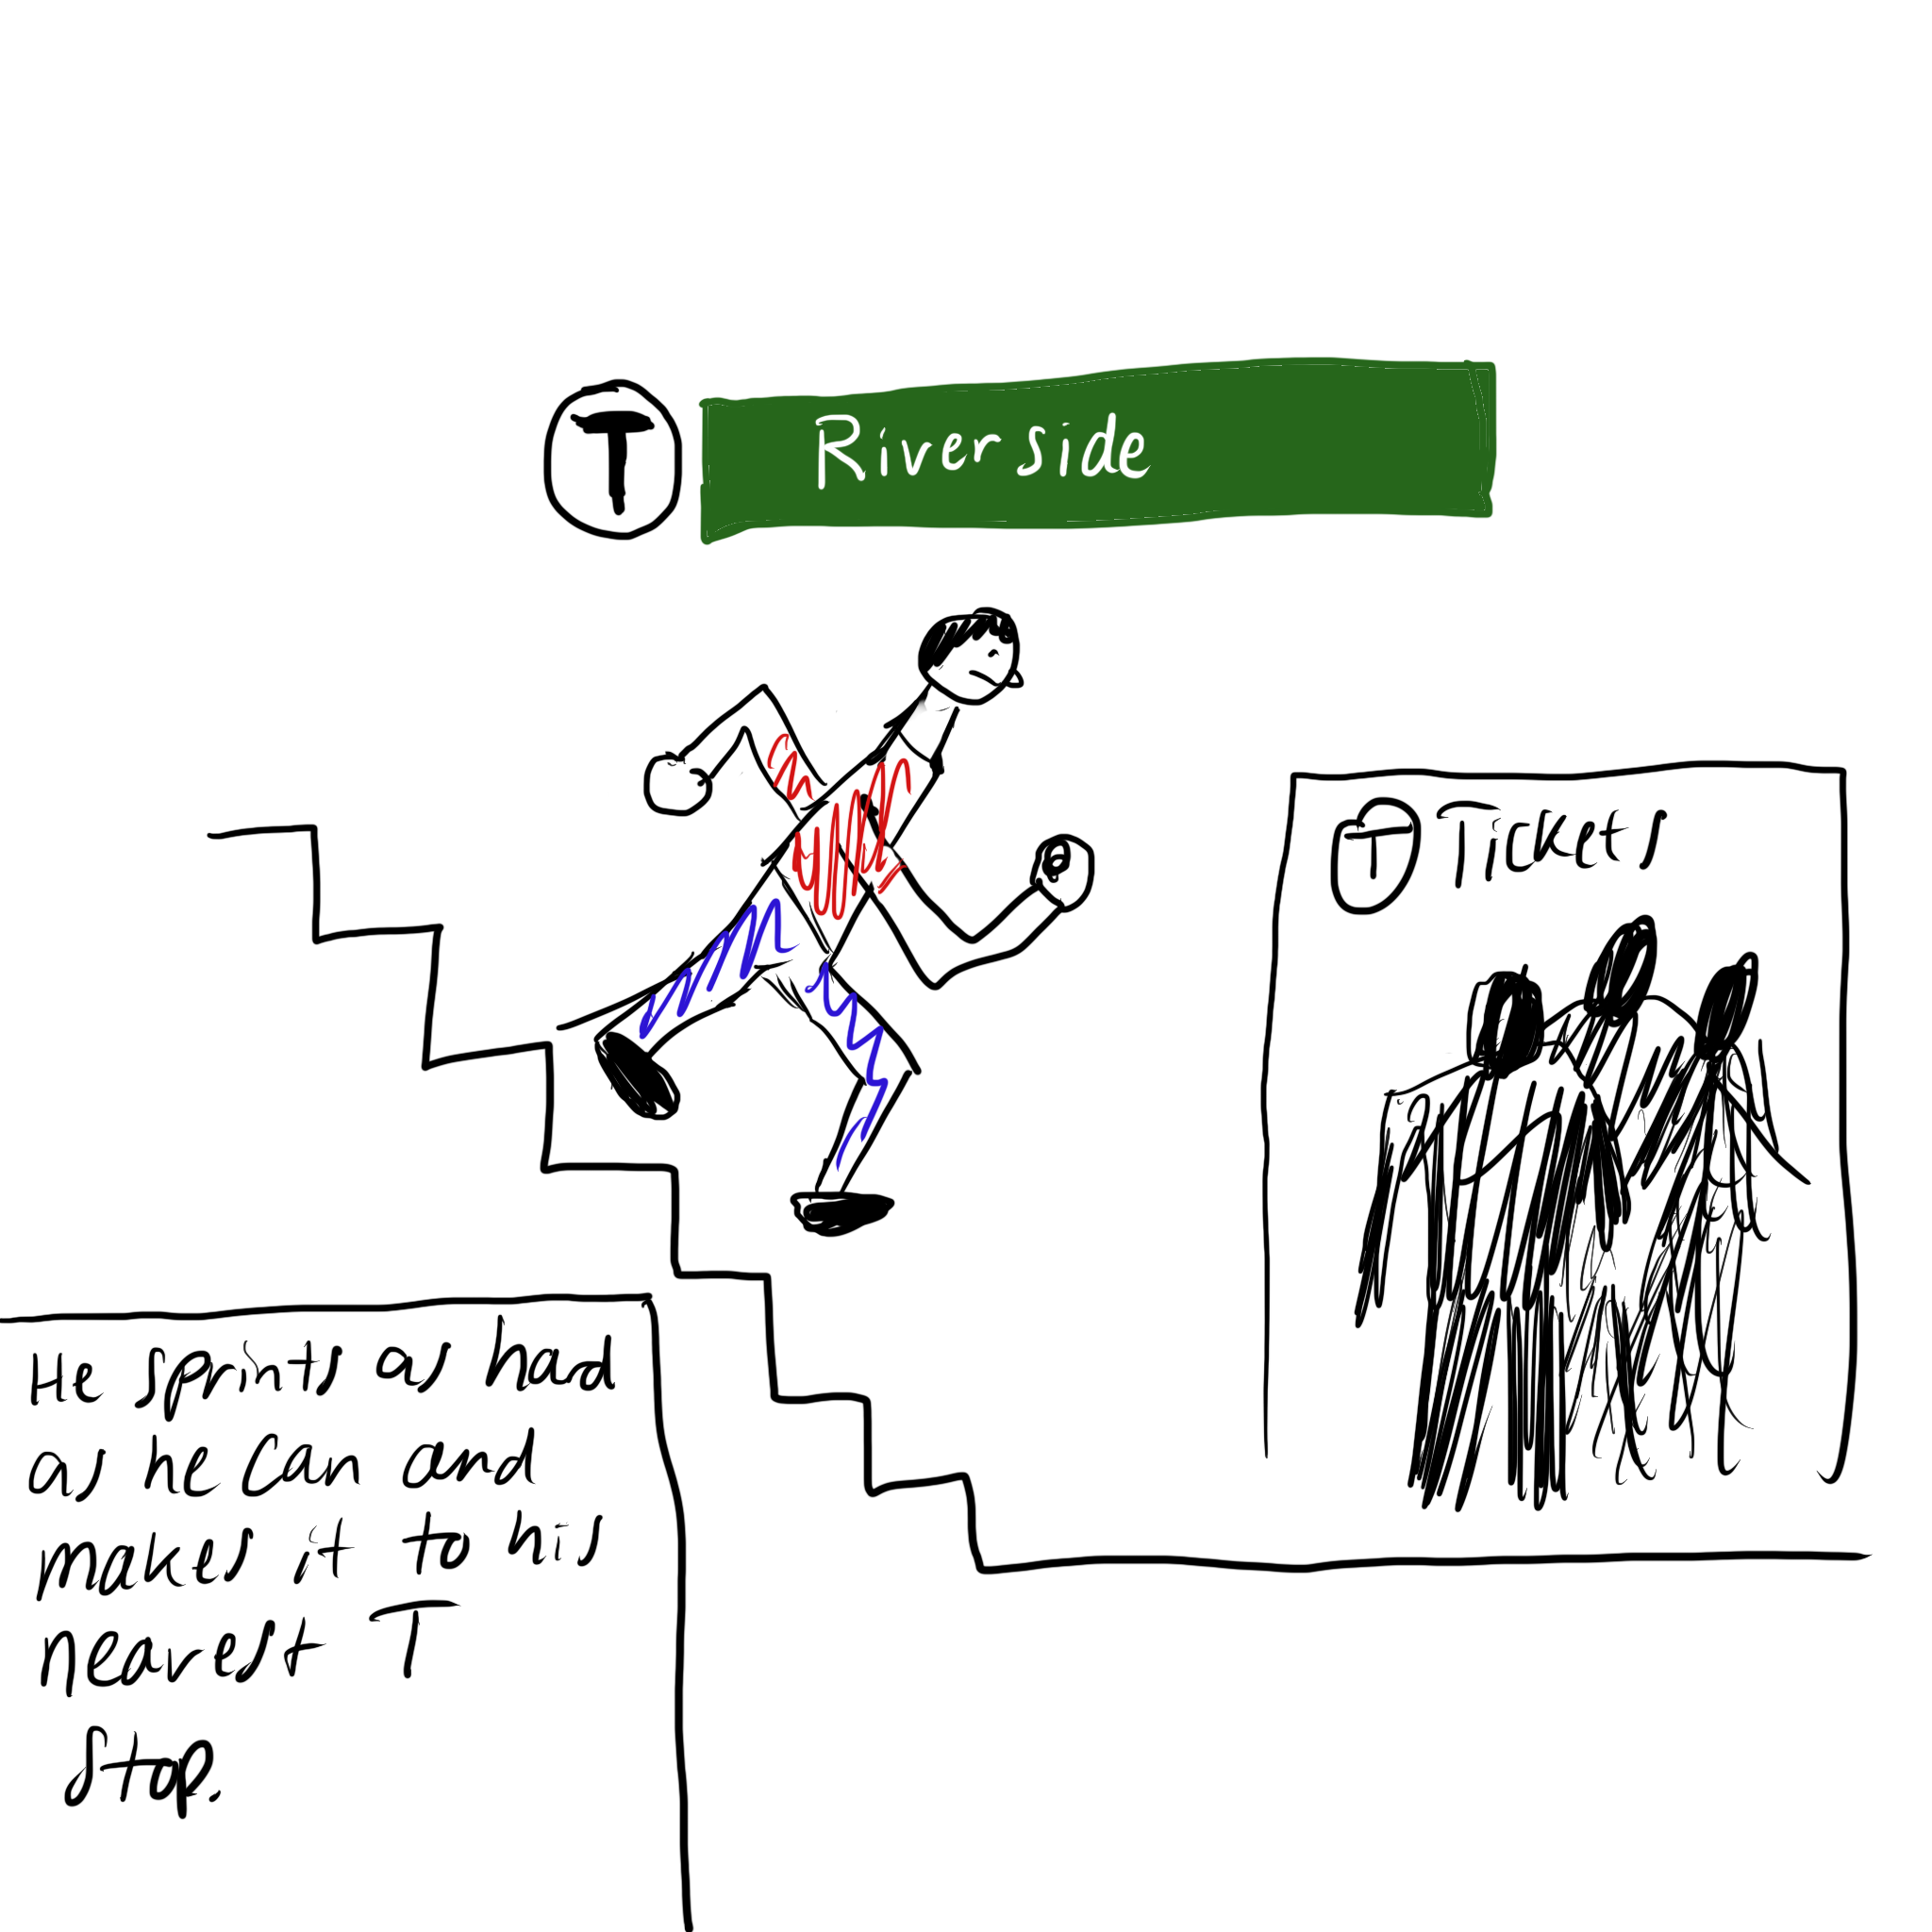 T Riverside
T Tickets
He sprints as had
as he can and
makes it to his
nearest T
stop.